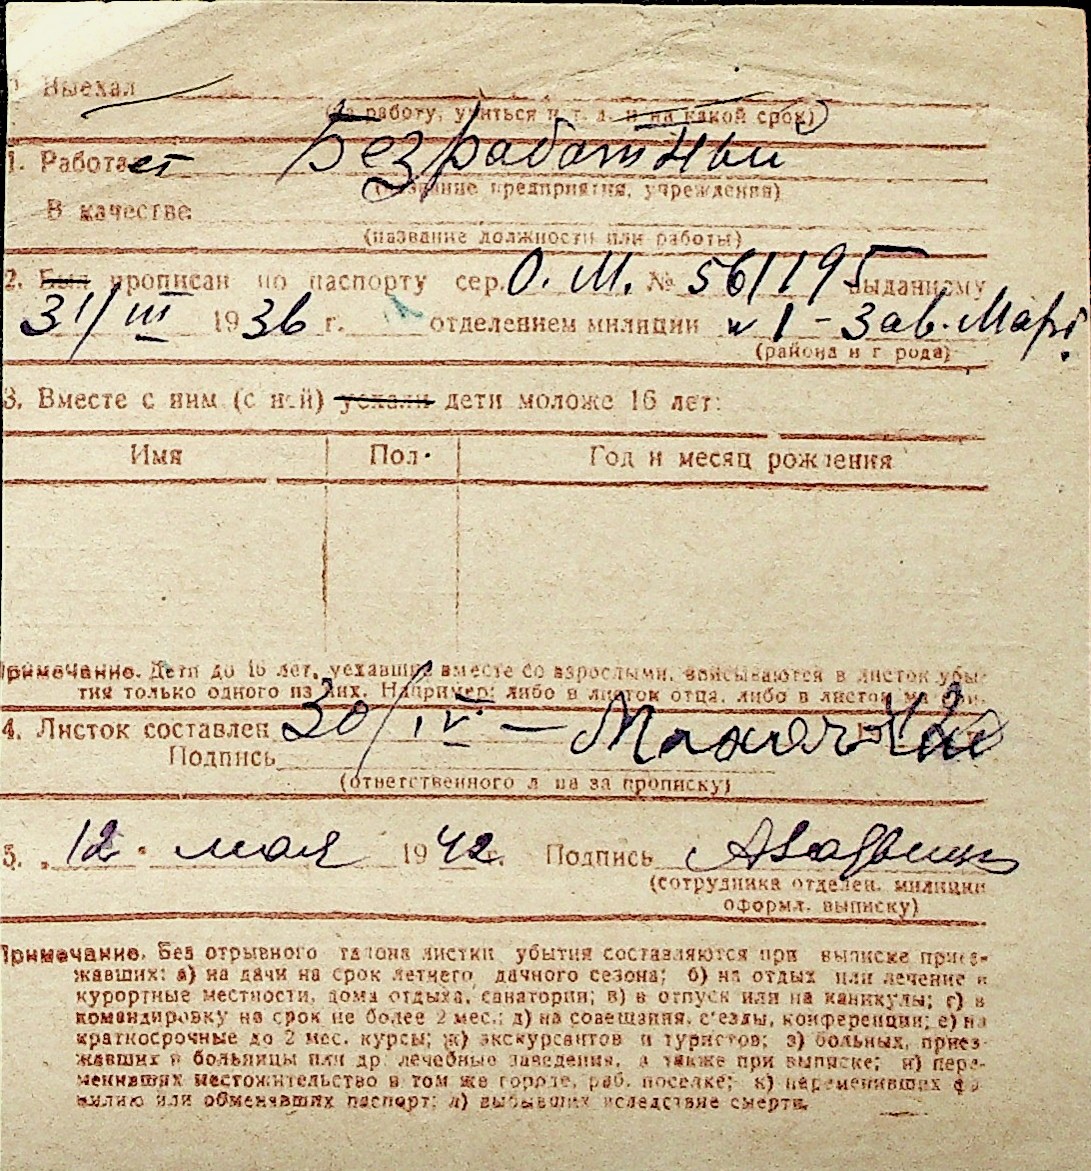 Выехал
(на работу, учиться и т. д. и на какой срок)
1. Работает Безработный
(название предприятия, учреждения)
В качестве
(название должности или работы)
2. Был прописан по паспорту сер. О. М. № 561195 выданному
31/III 1936 г. отделением милиции 1-
(района и города)
3. Вместе с ним (с ней) уехали дети моложе 16 лет:
Имя Пол Год и месяц рождения
Примечание. Дети до 16 лет, уехавшие вместе со взрослыми, вписываются в листок убы-
тия только одного из них. Например: либо в листок отца, либо в листок матери.
4. Листок составлен 30/IV - 42
Подпись
(ответственного лица за прописку)
5. „12" мая 1942 г. Подпись
(сотрудника отделен. милиции
оформл. выписку)
Примечание. Без отрывного талона листки убытия составляются при выписке приез-
жавших: а) на дачи на срок летнего дачного сезона; б) на отдых или лечение в
курортные местности, дома отдыха, санатории; в) в отпуск или на каникулы; г) в
командировку на срок не более 2 мес.; д) на совещания, с'езды, конференции; е) на
краткосрочные до 2 мес. курсы; ж) экскурсантов и туристов; з) больных, приез-
жавших в больницы или др. лечебные заведения, а также при выписке; и) пере-
менивших местожительство в том же городе, раб. поселке; к) переменивших фа-
милию или обменявших паспорт; л) выбывших вследствие смерти.